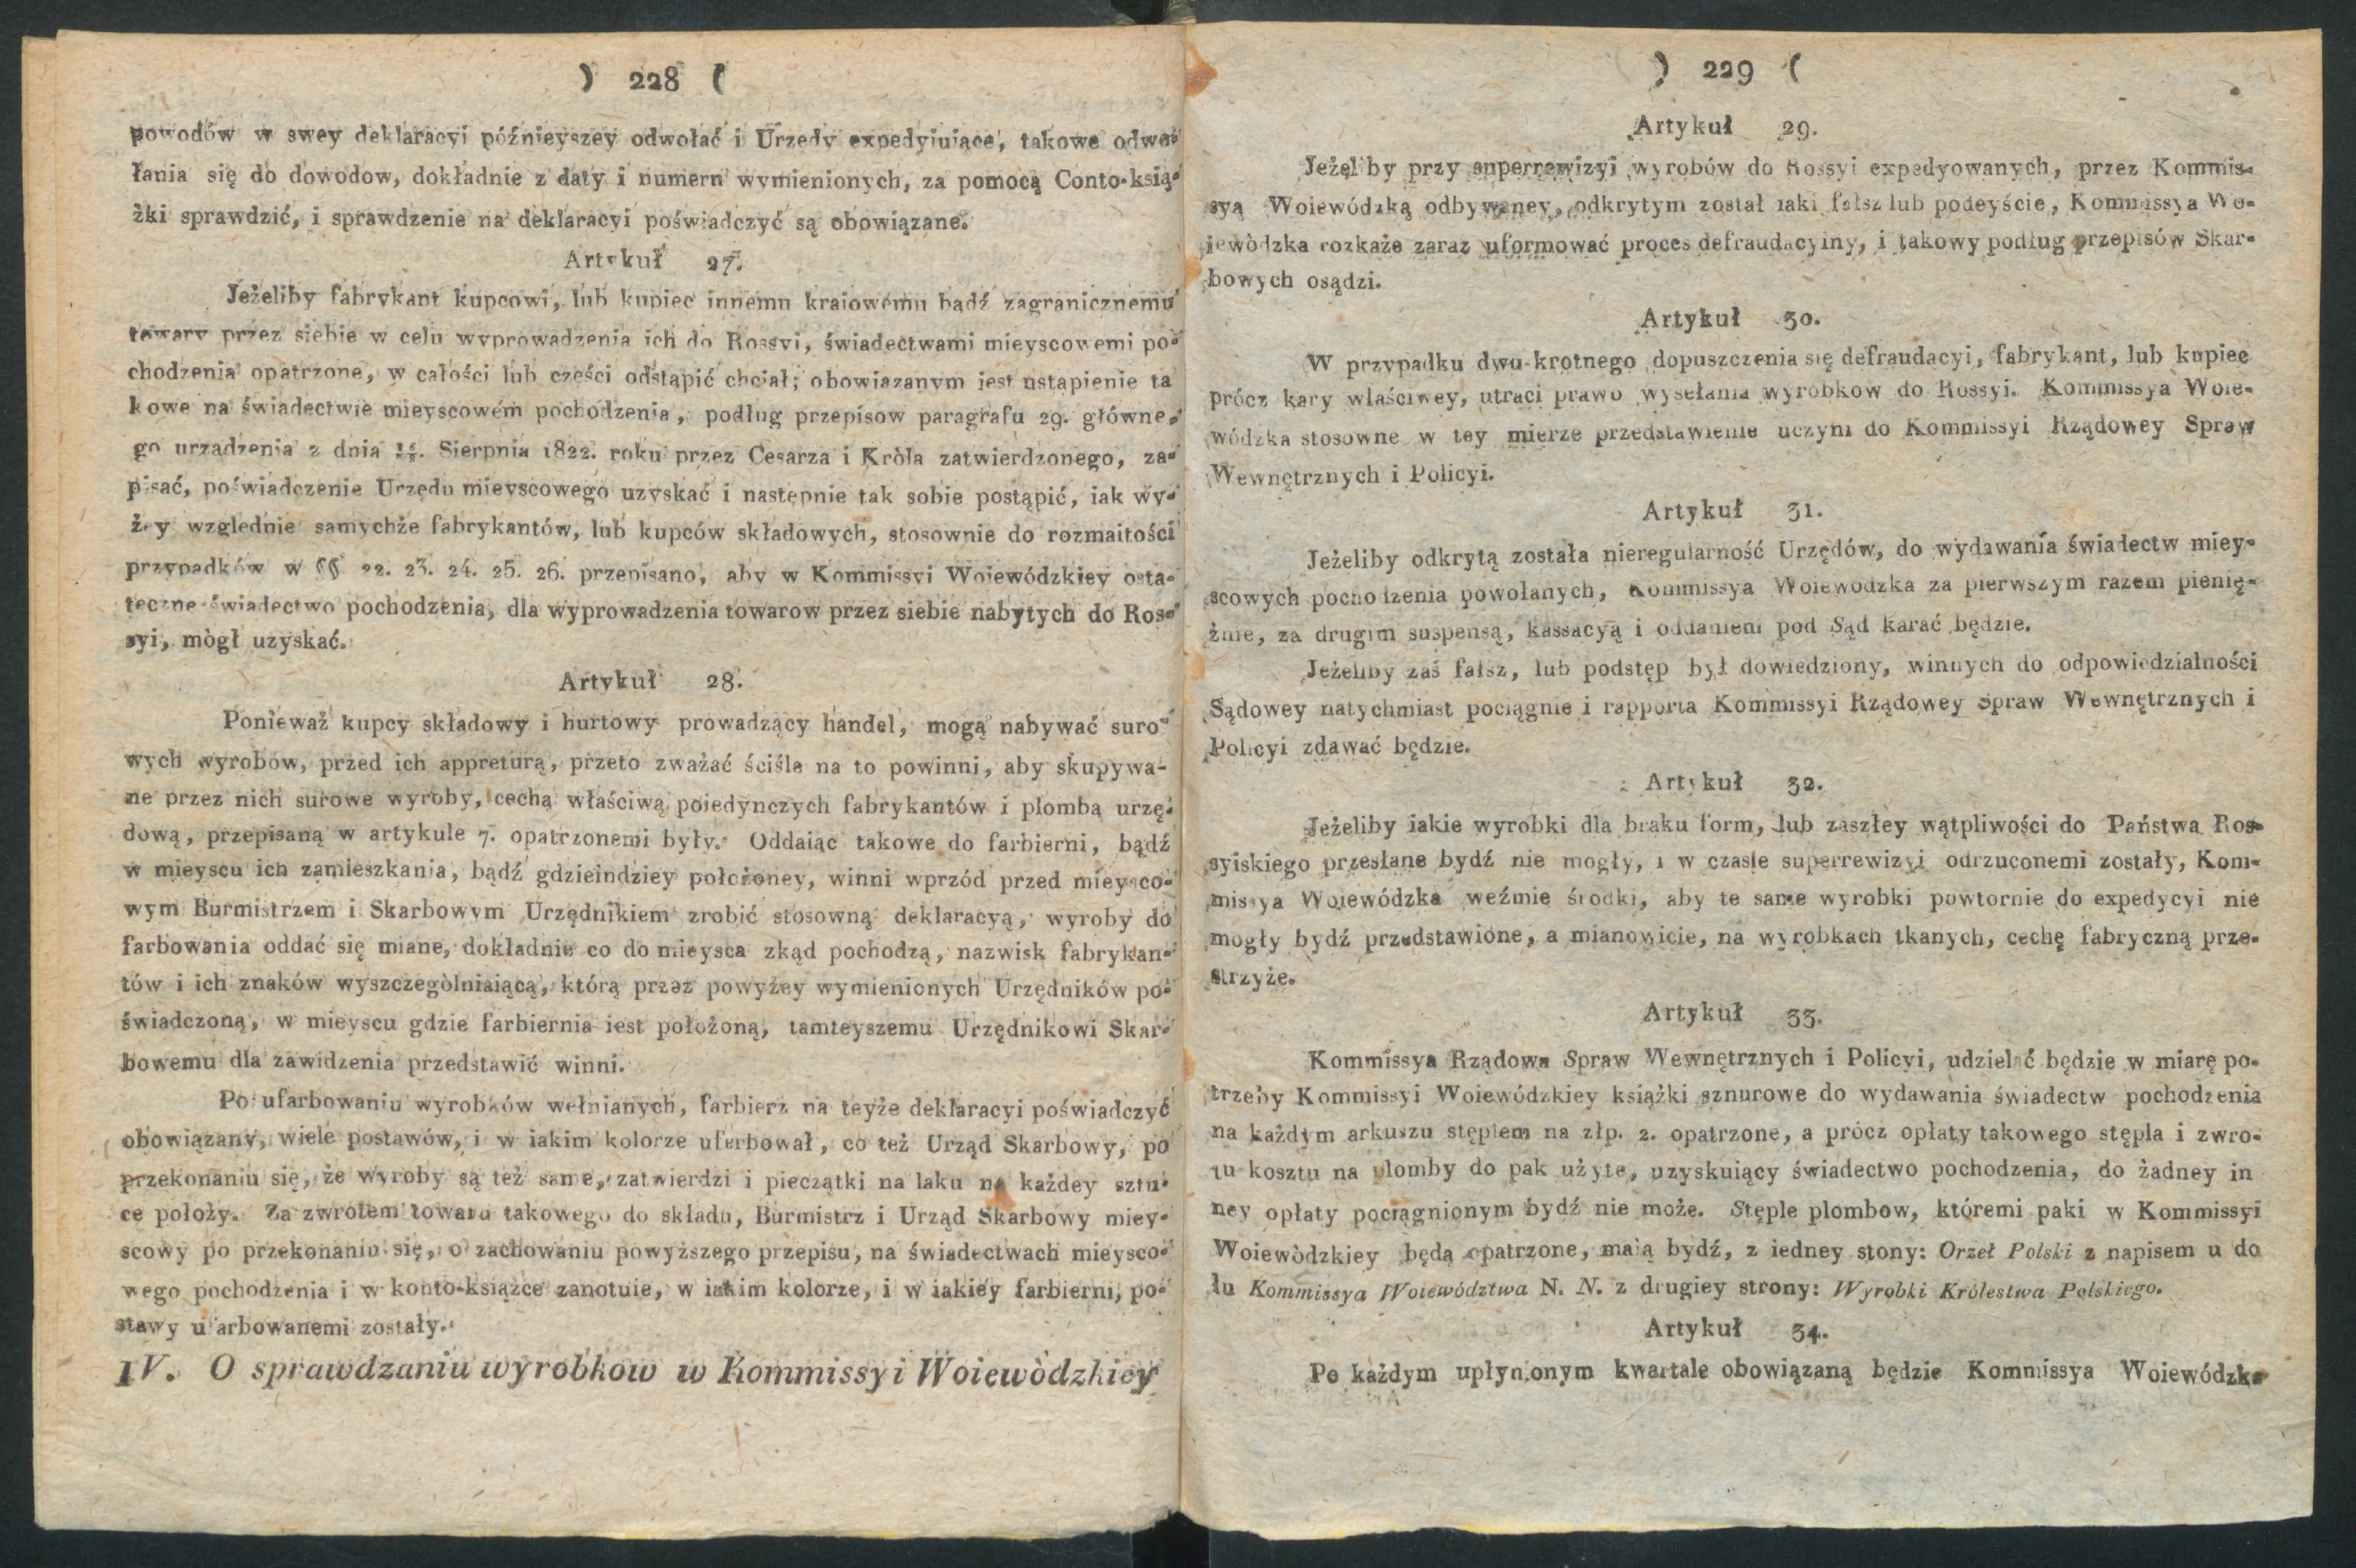 ) 228 (
powodów w swey deklaracyi późnieyszey odwołać i Urzędy expedyiuiące, takowe odwo-
łania się do dowodow, dokładnie z daty i numeru wymienionych, za pomocą Conto-ksią-
żki sprawdzić, i sprawdzenie na deklaracyi poświadczyć są obowiązane.
Artykuł 27.
Jeżeliby fabrykant kupcowi, lub kupiec innemu kraiowemu bądź zagranicznemu
towary przez siebie w celu wyprowadzenia ich do Rossyi, świadectwami mieyscowemi po-
chodzenia opatrzone, w całości lub części odstąpić chciał; obowiazanym iest ustapienie ta
kowe na świadectwie mieyscowém pochodzenia, podług przepisow paragrafu 29. główne-
go urzadzenia z dnia Sierpnia 1822. roku przez Cesarza i Króla zatwierdzonego, za-
pisać, poświadczenie Urzędu mieyscowego uzyskać i nastepnie tak sobie postąpić, iak wy-
żey względnie samychże fabrykantów, lub kupców składowych, stosownie do rozmaitości
przypadków w §§ 22. 23. 24. 25. 26. przepisano, aby w Kommissyi Woiewódzkiey osta-
teczne świadectwo pochodzenia, dla wyprowadzenia towarow przez siebie nabytych do Ros-
syi, mògł uzyskać.
Artykuł 28.
Ponieważ kupcy składowy i hurtowy prowadzący handel, mogą nabywać suro-
wych wyrobow, przed ich appreturą, przeto zważać ściśle na to powinni, aby skupywa-
ne przez nich surowe wyroby, cechą właściwą poiedynczych fabrykantów i plombą urzę-
dową, przepisaną w artykule 7. opatrzonemi były. Oddaiąc takowe do farbierni, bądź
w mieyscu ich zamieszkania, bądź gdzieindziey położoney, winni wprzód przed mieysco-
wym Burmistrzem i Skarbowym Urzędnikiem zrobić stosowną deklaracyą, wyroby do
farbowania oddać się miane, dokładnie co do mieysca zkąd pochodzą, nazwisk fabrykan-
tów i ich znaków wyszczegòlniaiącą, którą przez powyżey wymienionych Urzędników po-
świadczoną, w mieyscu gdzie farbiernia iest położoną, tamteyszemu Urzędnikowi Skar-
bowemu dla zawidzenia przedstawić winni.
Po ufarbowaniu wyrobków wełnianych, farbierz na teyże deklaracyi poświadczyć
obowiązany, wiele postawów, i w iakim kolorze ufarbował, co też Urząd Skarbowy, po
przekonaniu się, że wyroby są też same, zatwierdzi i pieczątki na laku na każdey sztu-
ce położy. Za zwrotem towaru takowego do składu, Burmistrz i Urząd Skarbowy miey-
scowy po przekonaniu się, o zachowaniu powyższego przepisu, na świadectwach mieysco-
wego pochodzenia i w konto-książce zanotuie, w iakim kolorze, i w iakiey farbierni, po-
stawy ufarbowanemi zostały.
IV. O sprawdzaniu wyrobkow w Kommissyi Woiewòdzkiey
) 229 (
Artykuł 29.
Jeżeliby przy superrewizyi wyrobów do Rossyi expedyowanych, przez Kommis-
syą Woiewódzką odbywaney, odkrytym został iaki fałsz lub podeyście, Kommissya Wo-
iewòdzka rozkaże zaraz uformować proces defraudacyiny, i takowy podług przepisów Skar-
bowych osądzi.
Artykuł 30.
W przypadku dwu-krotnego dopuszczenia się defraudacyi, fabrykant, lub kupiec
prócz kary właściwey, utraci prawo wysełania wyrobkow do Rossyi. Kommissya Woie-
wódzka stosowne w tey mierze przedstawienie uczyni do Kommissyi Rządowey Spraw
Wewnętrznych i Policyi.
Artykuł 31.
Jeżeliby odkrytą została nieregularność Urzędów, do wydawania świadectw miey-
scowych pochodzenia powołanych, Kommissya Woiewodzka za pierwszym razem pienię-
żnie, za drugim suspensą, kassacyą i oddaniem pod Sąd karać będzie.
Jeżeliby zaś fałsz, lub podstęp był dowiedziony, winnych do odpowiedzialności
Sądowey natychmiast pociągnie i rapporta Kommissyi Rządowey Spraw Wewnętrznych i
Policyi zdawać będzie.
Artykuł 32.
Jeżeliby iakie wyrobki dla braku form, lub zaszłey wątpliwości do Państwa Ros-
syiskiego przesłane bydź nie mogły, i w czasie superrewizyi odrzuconemi zostały, Kom-
missya Woiewódzka weźmie środki, aby te same wyrobki powtornie do expedycyi nie
mogły bydź przedstawione, a mianowicie, na wyrobkach tkanych, cechę fabryczną prze-
strzyże.
Artykuł 33.
Kommissya Rządowa Spraw Wewnętrznych i Policyi, udzielać będzie w miarę po-
trzeby Kommissyi Woiewódzkiey książki sznurowe do wydawania świadectw pochodzenia
na każdym arkuszu stęplem na złp. 2. opatrzone, a prócz opłaty takowego stępla i zwro-
tu kosztu na plomby do pak użyte, uzyskuiący świadectwo pochodzenia, do żadney in
ney opłaty pociągnionym bydź nie może. Stęple plombow, któremi paki w Kommissyi
Woiewòdzkiey będą opatrzone, maią bydź, z iedney stony: Orzeł Polski z napisem u do
łu Kommissya Woiewództwa N. N. z drugiey strony: Wyrobki Królestwa Polskiego.
Artykuł 34.
Po każdym upłynionym kwartale obowiązaną będzie Kommissya Woiewódzka